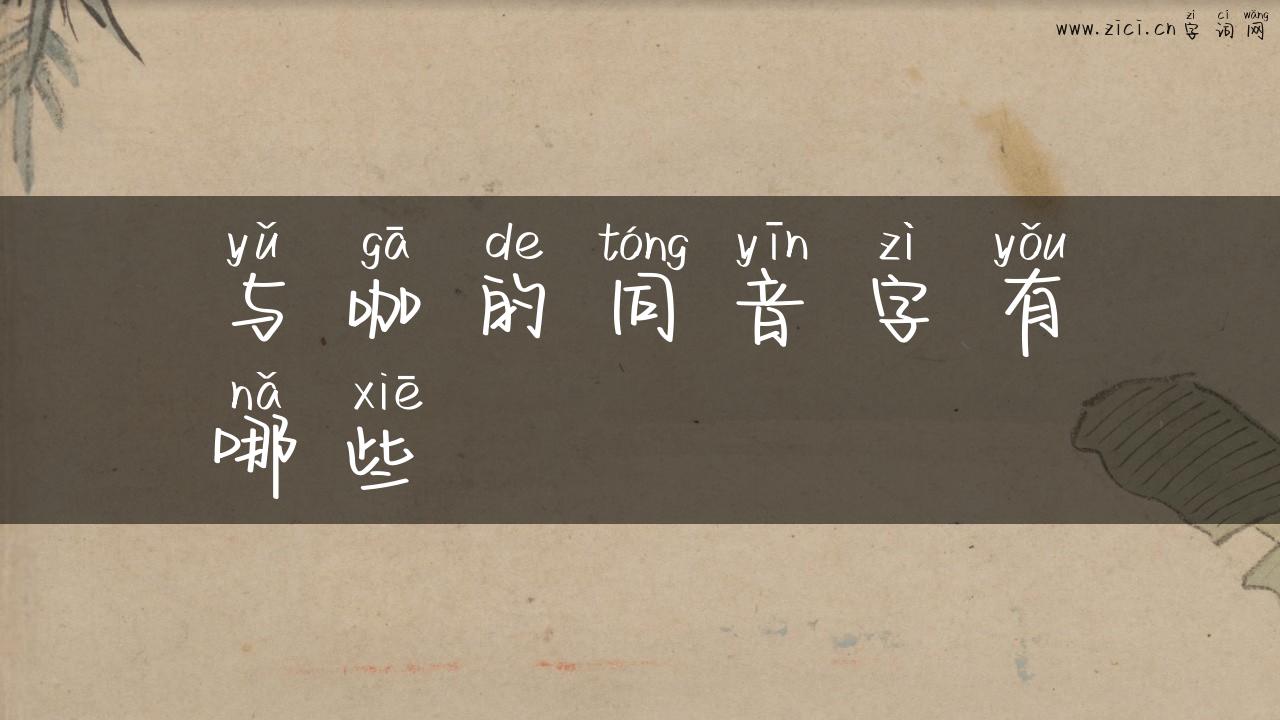 zì cí wǎng
www.zici.cn 字词网
yǔ gā de tóng yīn zì yǒu
与咖的同音字有
nǎ xiē
哪些